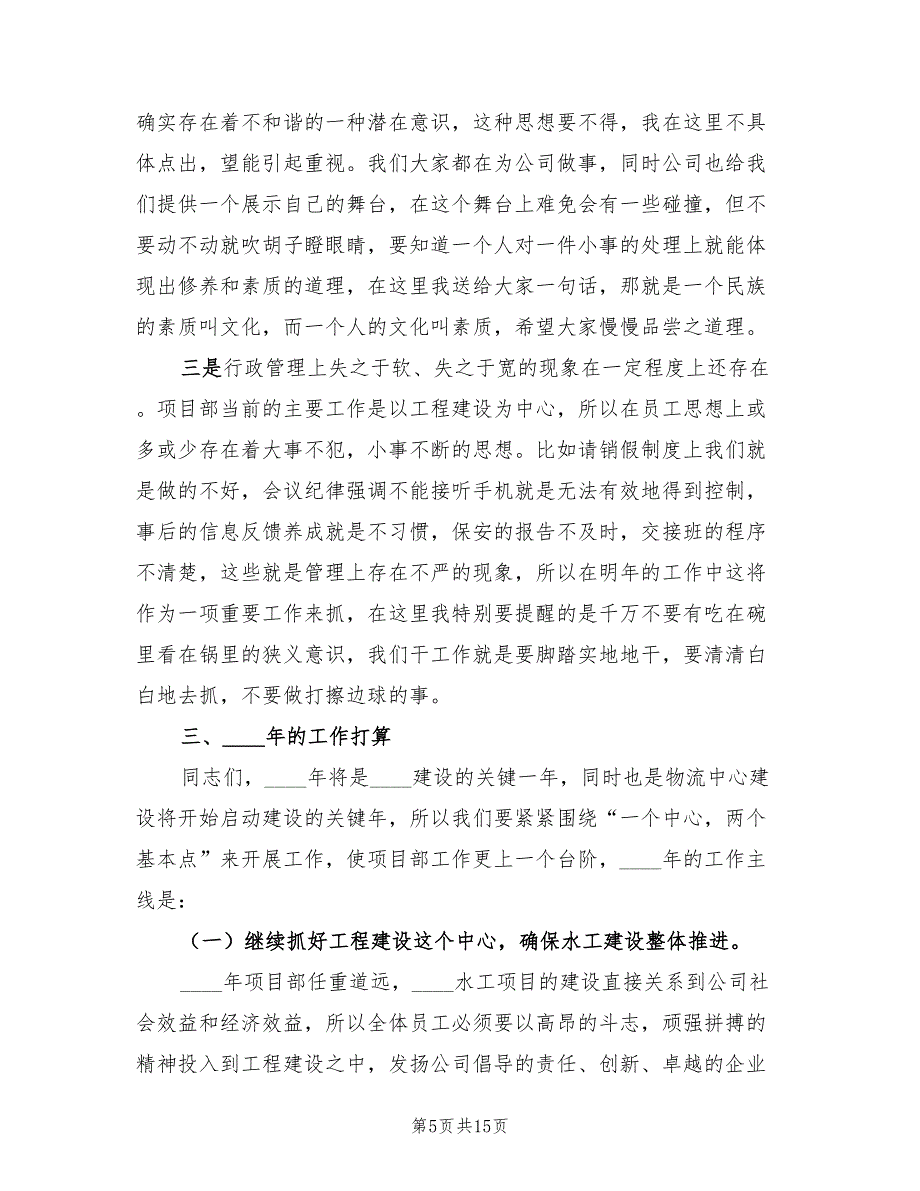 确实存在着不和谐的一种潜在意识，这种思想要不得，我在这里不具
体点出，望能引起重视。我们大家都在为公司做事，同时公司也给我
们提供一个展示自己的舞台，在这个舞台上难免会有一些碰撞，但不
要动不动就吹胡子瞪眼睛，要知道一个人对一件小事的处理上就能体
现出修养和素质的道理，在这里我送给大家一句话，那就是一个民族
的素质叫文化，而一个人的文化叫素质，希望大家慢慢品尝之道理。
三是行政管理上失之于软、失之于宽的现象在一定程度上还存在
。项目部当前的主要工作是以工程建设为中心，所以在员工思想上或
多或少存在着大事不犯，小事不断的思想。比如请销假制度上我们就
是做的不好，会议纪律强调不能接听手机就是无法有效地得到控制，
事后的信息反馈养成就是不习惯，保安的报告不及时，交接班的程序
不清楚，这些就是管理上存在不严的现象，所以在明年的工作中这将
作为一项重要工作来抓，在这里我特别要提醒的是千万不要有吃在碗
里看在锅里的狭义意识，我们干工作就是要脚踏实地地干，要清清白
白地去抓，不要做打擦边球的事。
三、____年的工作打算
同志们，____年将是____建设的关键一年，同时也是物流中心建
设将开始启动建设的关键年，所以我们要紧紧围绕“一个中心，两个
基本点”来开展工作，使项目部工作更上一个台阶，____年的工作主
线是：
（一）继续抓好工程建设这个中心，确保水工建设整体推进。
____年项目部任重道远，____水工项目的建设直接关系到公司社
会效益和经济效益，所以全体员工必须要以高昂的斗志，顽强拼搏的
精神投入到工程建设之中，发扬公司倡导的责任、创新、卓越的企业
第5页共15页